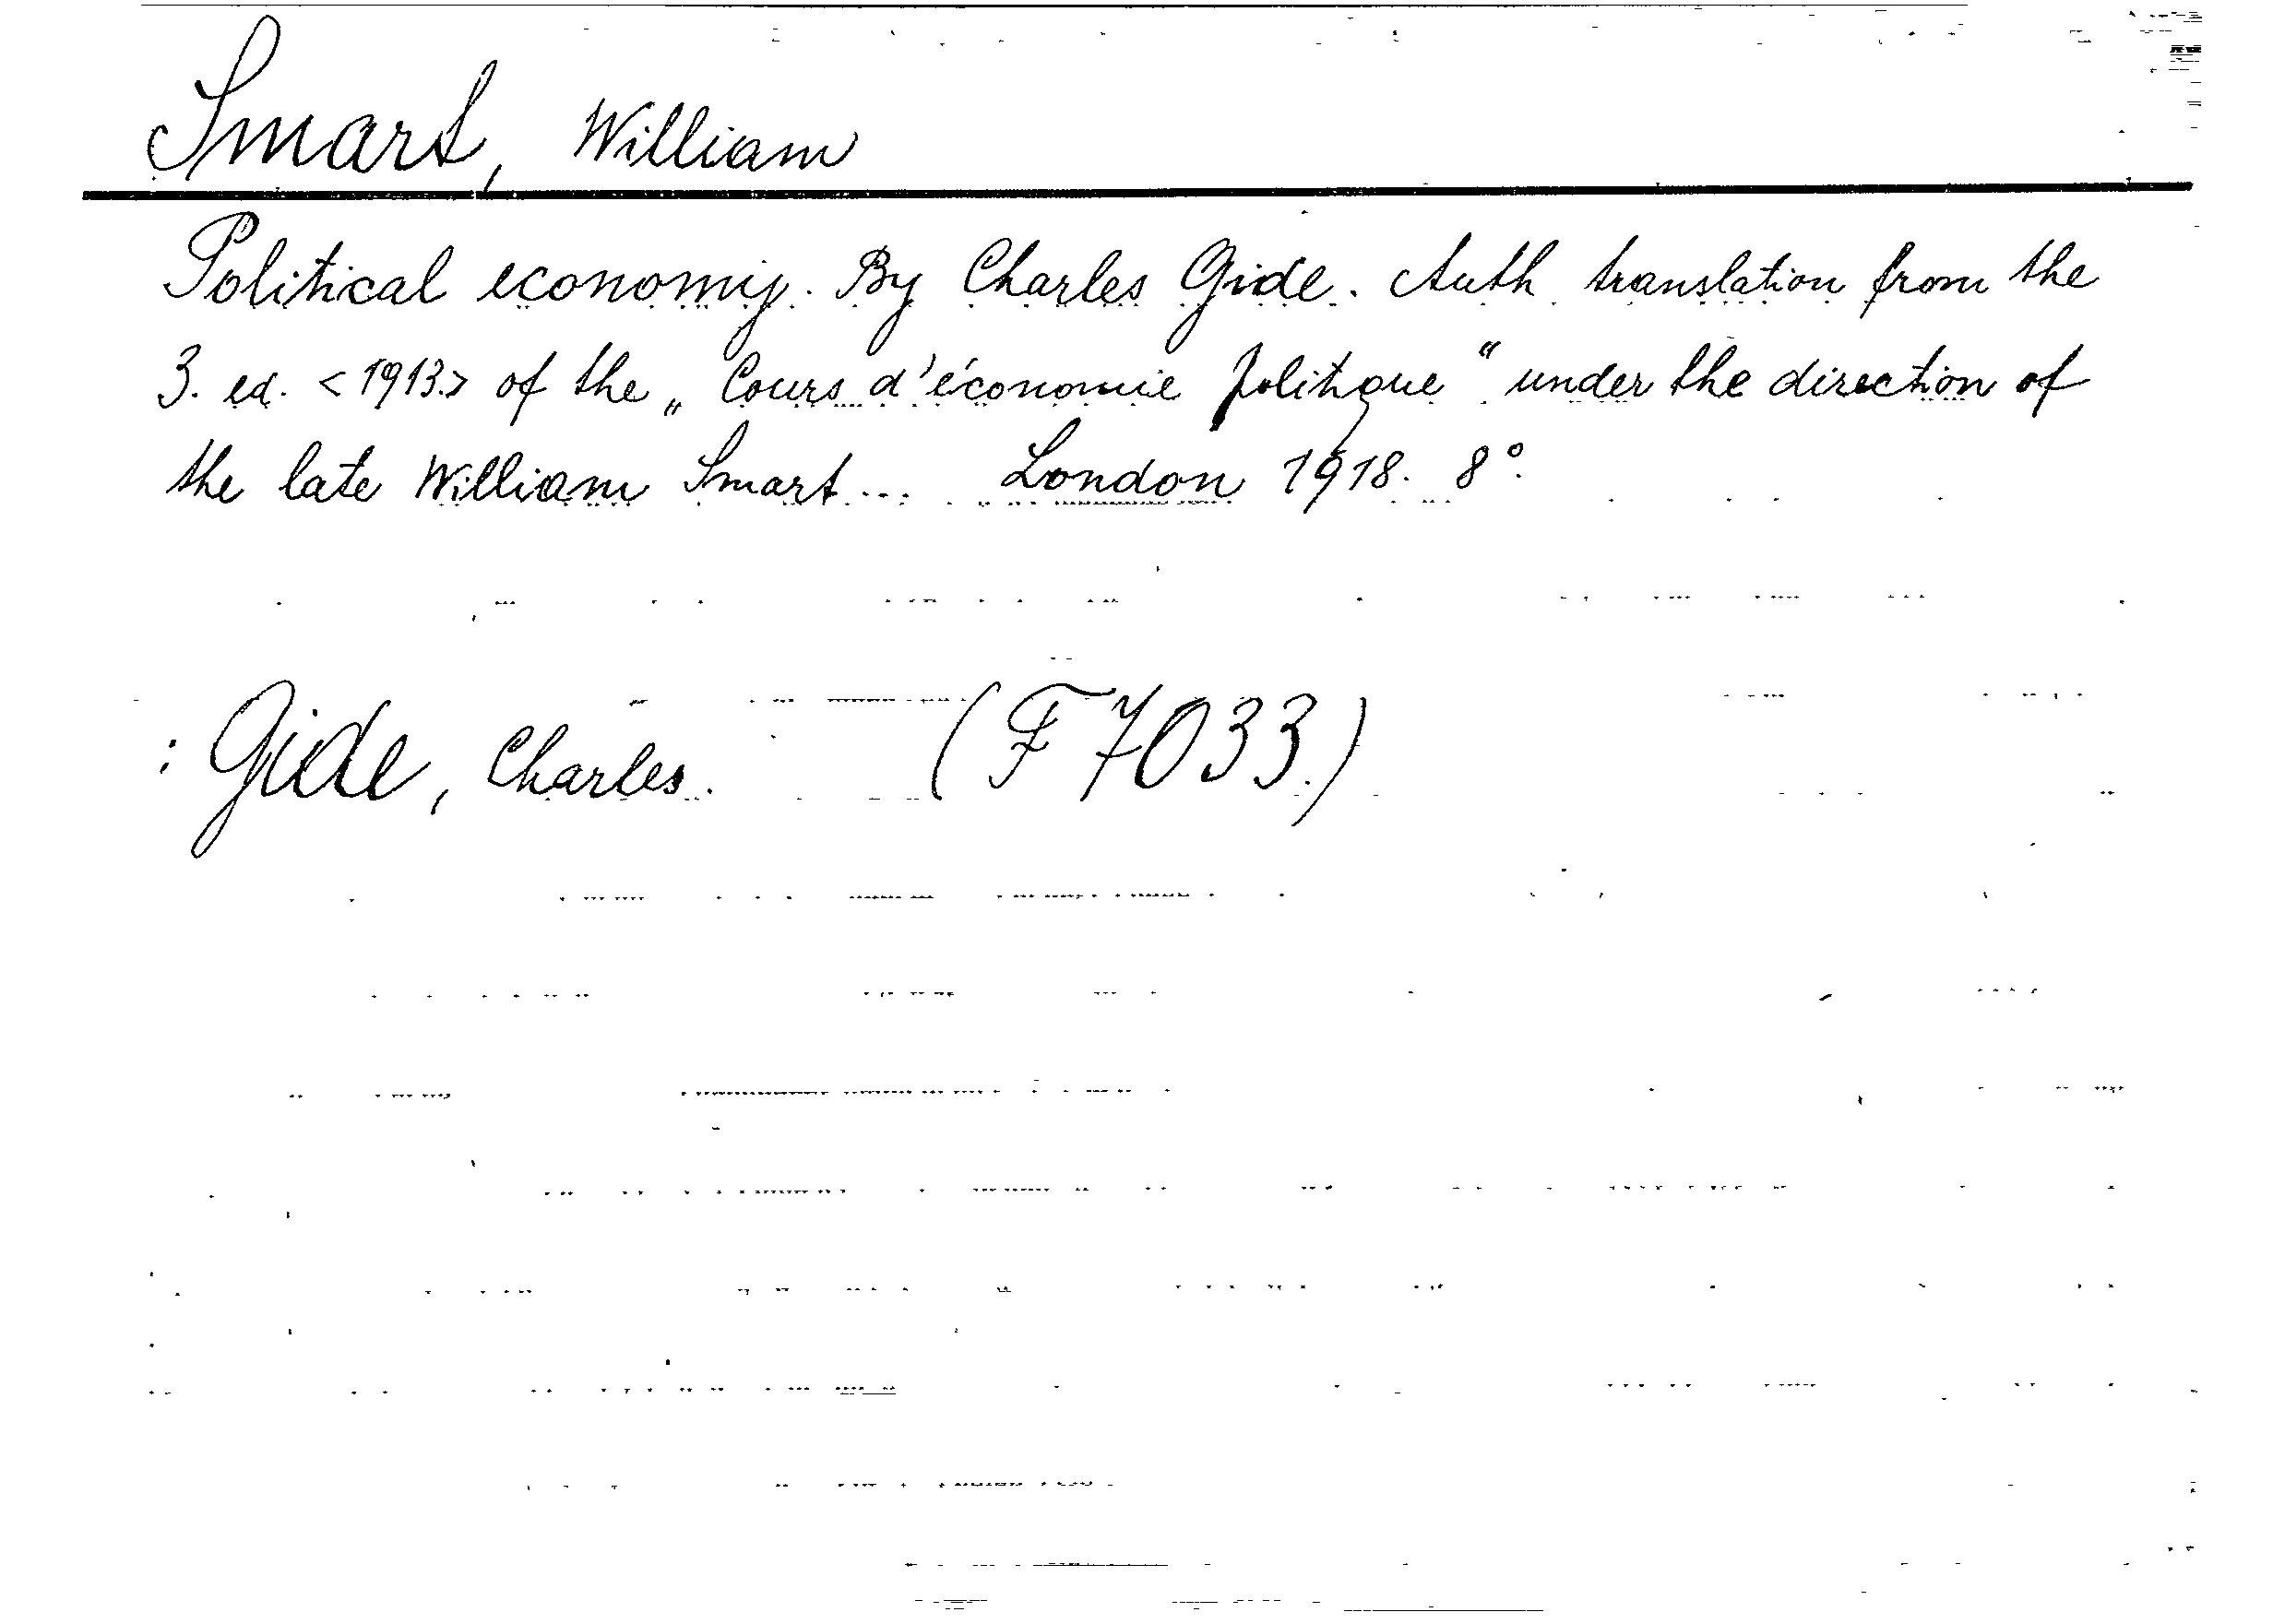 Smart, William
Political economy. By Charles Gide. Auth. translation from the
3. ed. <1913.> of the „Cours d'économie politique“ under the direction of
the late William Smart... London 1918. 8°.
: Gide, Charles. (F 7033.)